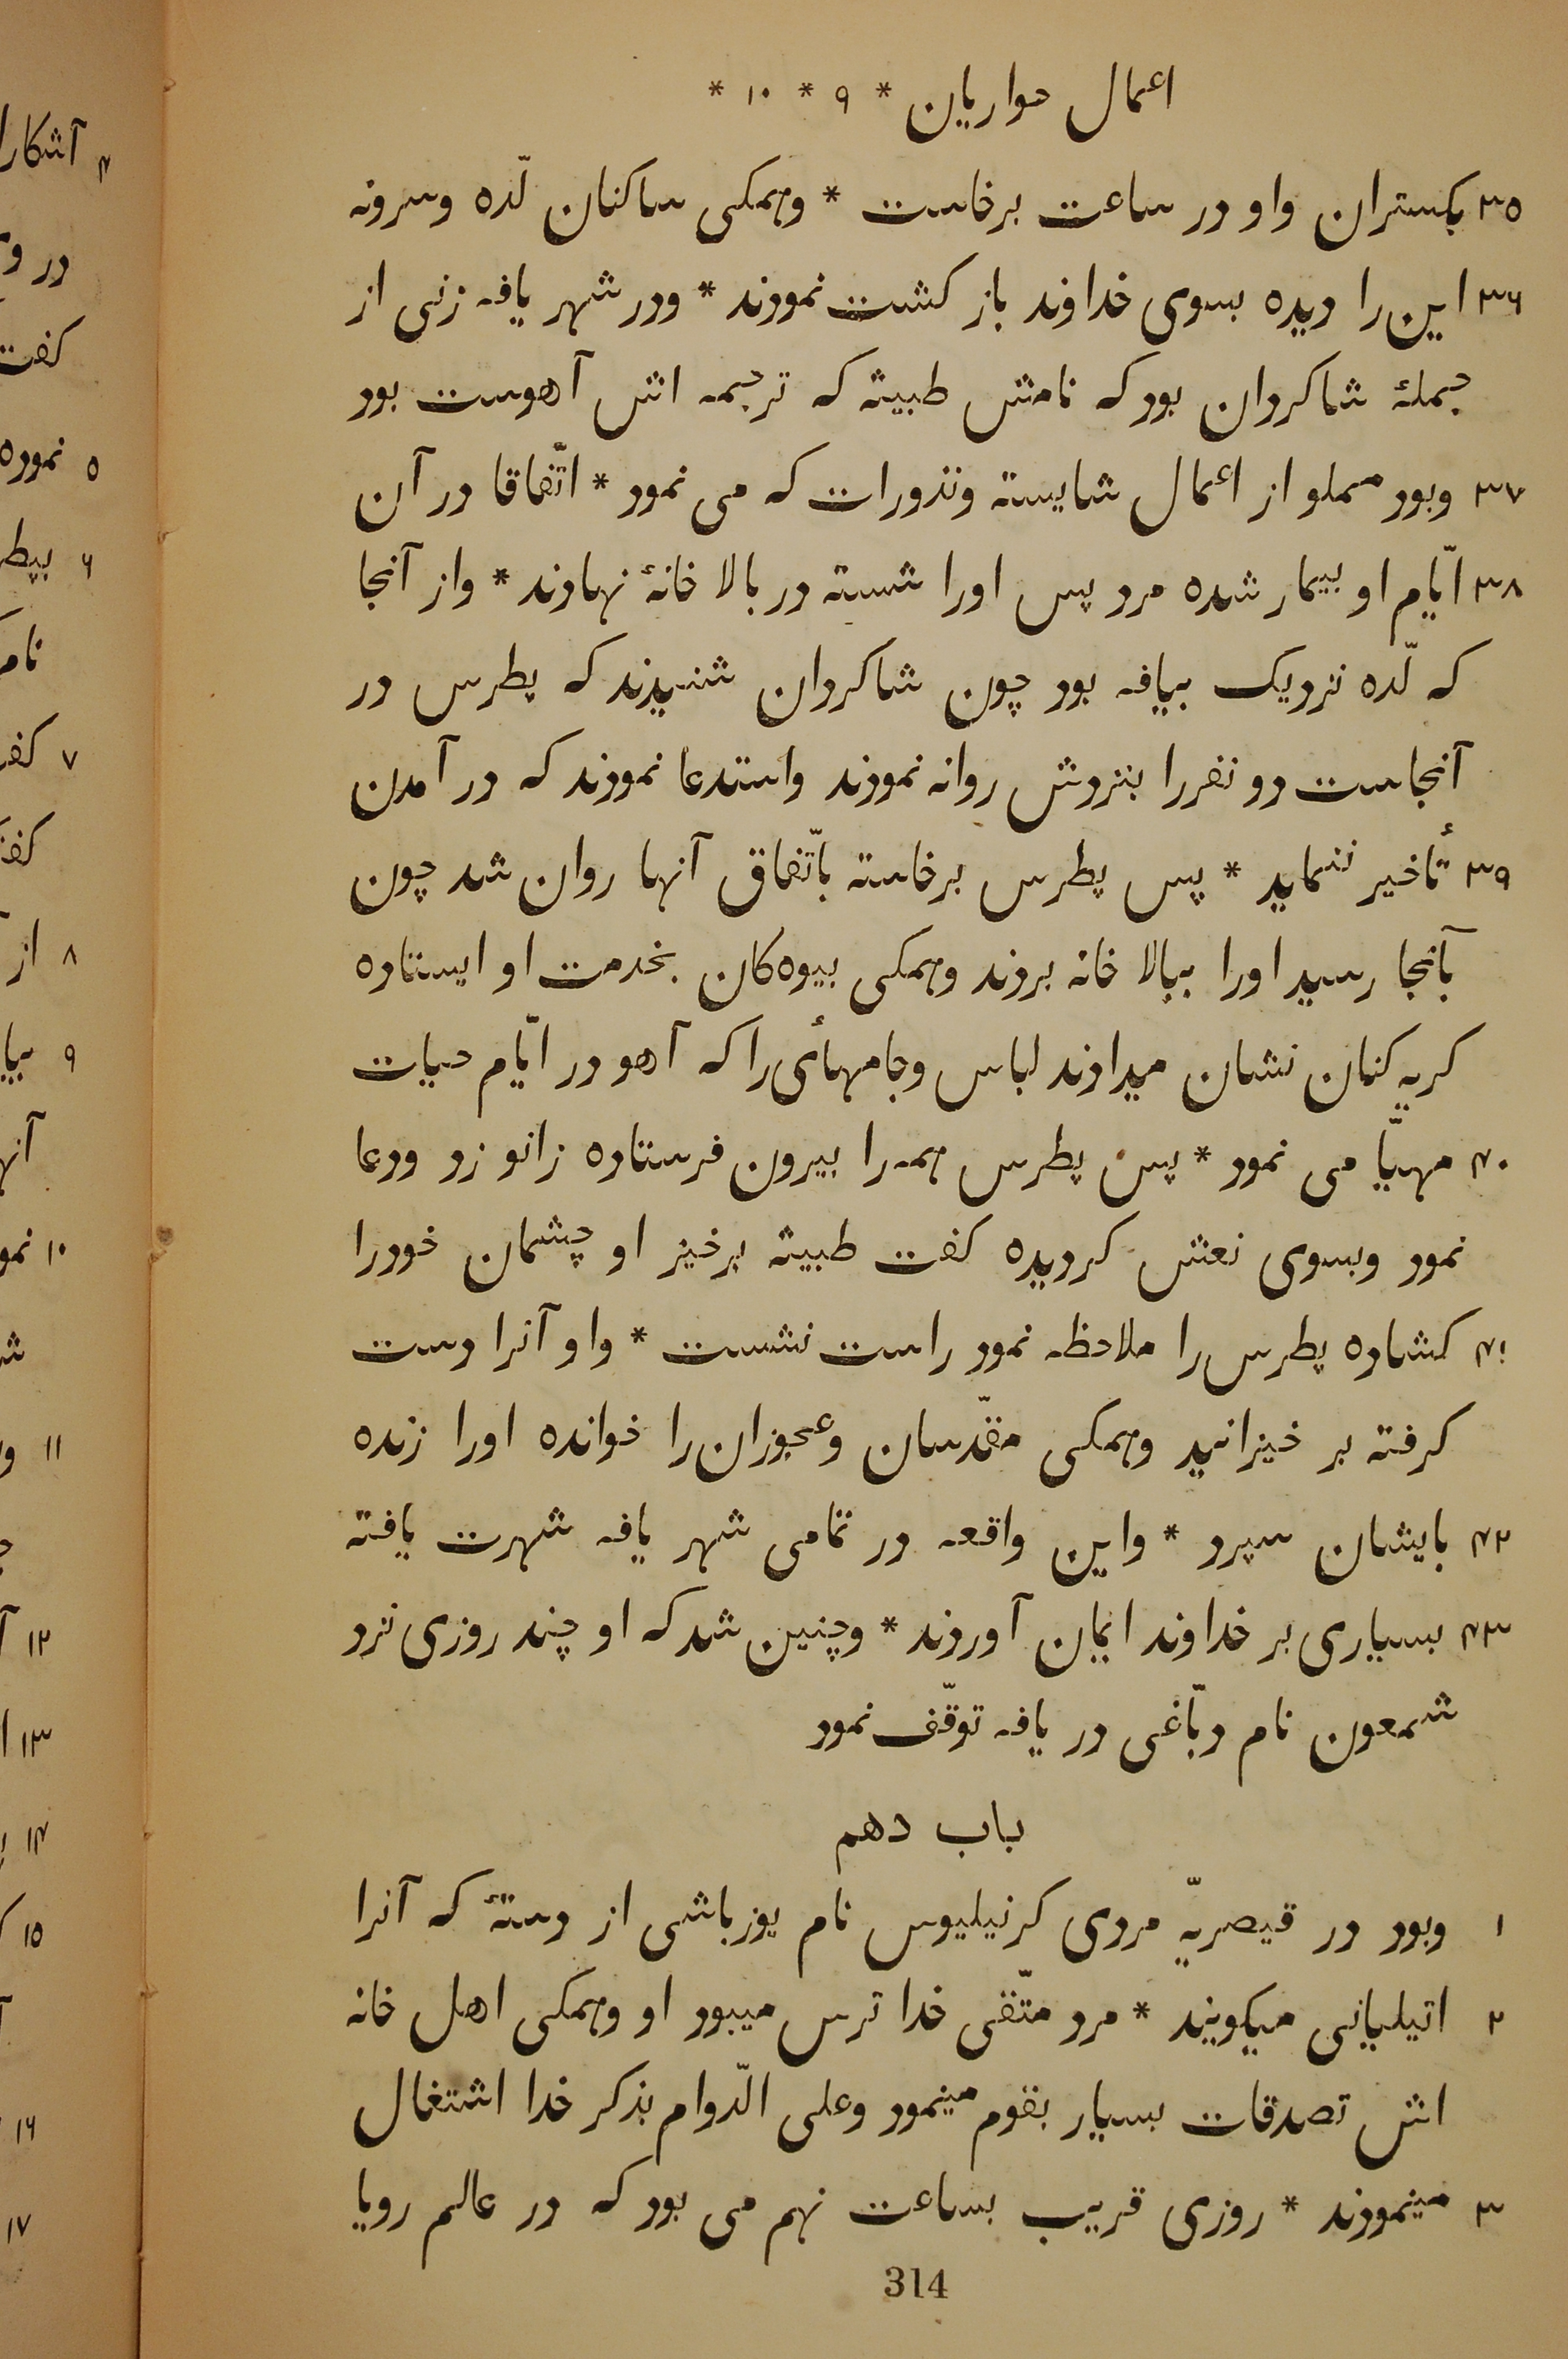 اعمال حواریان * ۹ * ۱۰ *
۳۵ بکستران واو در ساعت برخاست * وهمکی ساکنان لّده وسرونه
۳۶ این را دیده بسوی خداوند باز کشت نمودند * ودر شهر یافه زنی از
جملهٔ شاکردان بود که نامش طبیثه که ترجمه اش آهوست بود
۳۷ وبود مملو از اعمال شایسته ونذورات که می نمود * اتّفاقا در آن
۳۸ ایّام او بیمار شده مرد پس اورا شسته در بالا خانهٔ نهادند * واز آنجا
که لّده نزدیک بیافه بود چون شاکردان شنیدند که پطرس در
آنجاست دو نفررا بنزدش روانه نمودند واستدعا نمودند که در آمدن
۳۹ تأخیر ننماید * پس پطرس برخاسته باتّفاق آنها روان شد چون
بآنجا رسید اورا ببالا خانه بردند وهمکی بیوه‌کان بخدمت او ایستاده
کریه کنان نشان میدادند لباس وجامهائی را که آهو در ایّام حیات
۴۰ مهیّا می نمود * پس پطرس همه را بیرون فرستاده زانو زد ودعا
نمود وبسوی نعش کردیده کفت طبیثه برخیز او چشمان خودرا
۴۱ کشاده پطرس را ملاحظه نمود راست نشست * واو آنرا دست
کرفته بر خیزانید وهمکی مقدّسان وعجوزان را خوانده اورا زنده
۴۲ بایشان سپرد * واین واقعه در تمامی شهر یافه شهرت یافته
۴۳ بسیاری بر خداوند ایمان آوردند * وچنین شد که او چند روزی نزد
شمعون نام دبّاغی در یافه توقّف نمود
باب دهم
۱ وبود در قیصریّه مردی کرنیلیوس نام یوزباشی از دستهٔ که آنرا
۲ اتیلیانی میکویند * مرد متّقی خدا ترس میبود او وهمکی اهل خانه
اش تصدقات بسیار بقوم مینمود وعلی الدّوام بذکر خدا اشتغال
۳ مینمودند * روزی قریب بساعت نهم می بود که در عالم رویا
314
۴ آشکارا
کفت
۵ نموده
۶
۷
۸ از
۹
۱۰
۱۱
۱۲
۱۳
۱۴
۱۵
۱۶
۱۷